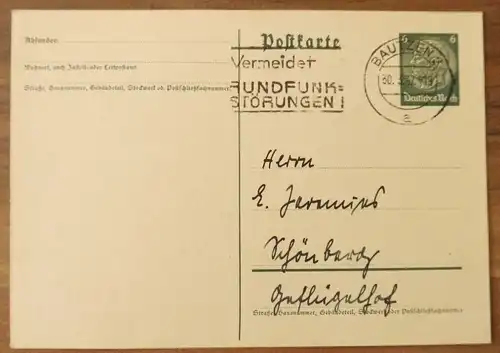 Absender:
Postkarte
6 6
Wohnort, auch Zustell- oder Leitpostamt
Vermeidet
BAUTZEN
RUNDFUNK=
Deutsches Reich
Straße, Hausnummer, Gebäudeteil, Stockwerk od. Postschließfachnummer
STÖRUNGEN!
a
Herrn
E. Jeremies
Schönberg
Geflügelhof
Straße, Hausnummer, Gebäudeteil, Stockwerk oder Postschließfachnummer